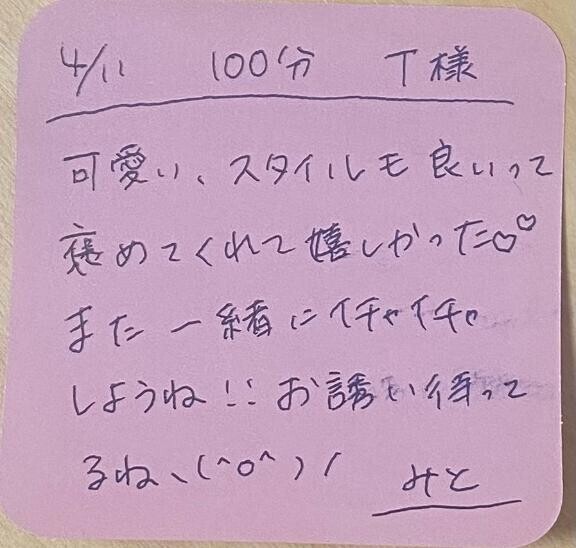 4/11 100分 T様
可愛い、スタイルも良いって
褒めてくれて嬉しかった♡♡
また一緒にイチャイチャ
しようね!!お誘い待って
るね、(^o^)/
みと